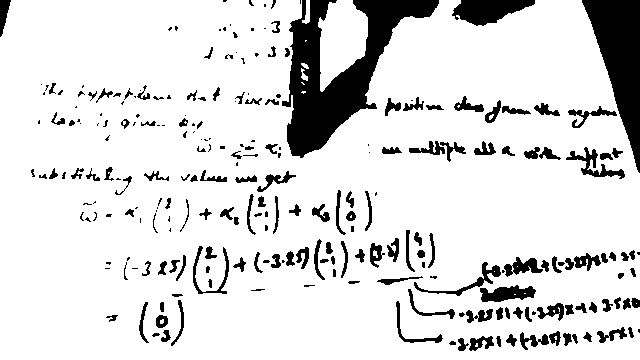 α₂ = -3.
α₃ = 3.5
The hyperplane that discrim positive class from the negative
class is given by
w̃ = Σ αᵢ we multiply all α with support vectors
substituting the values we get
w̃ = α₁ (2 1 1) + α₂ (2 -1 1) + α₃ (4 0 1)
= (-3.25) (2 1 1) + (-3.25) (2 -1 1) + (3.5) (4 0 1)
(-3.25)x2 + (-3.25)x2 + 3.5
= (1 0 -3)
-3.25x1 + (-3.25)x-1 + 3.5x0
-3.25x1 + (-3.25)x1 + 3.5x1